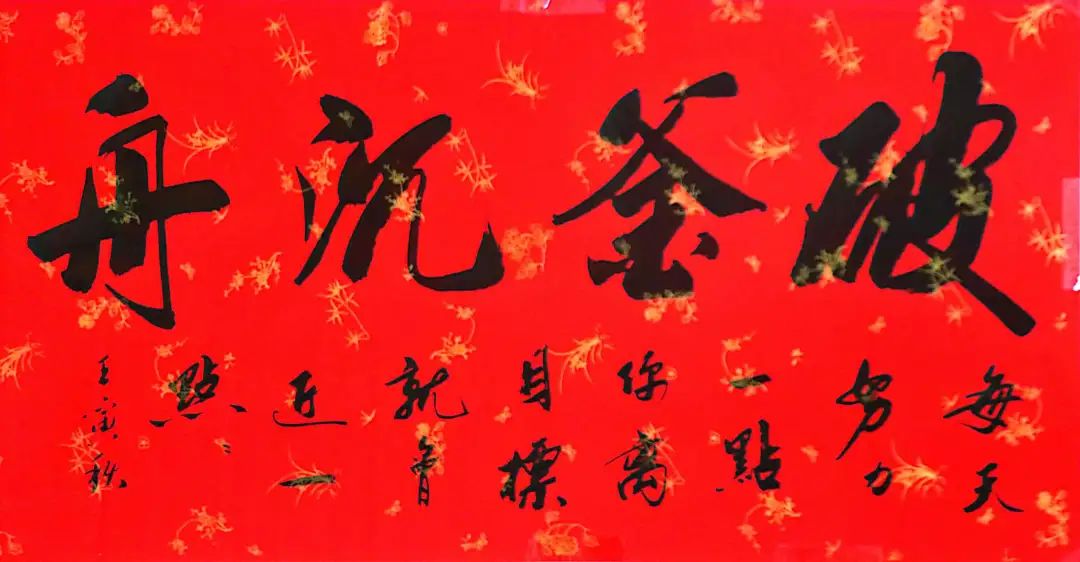 破釜沉舟
每天
努力
一點
你离
目標
就會
近一
點
壬寅秋